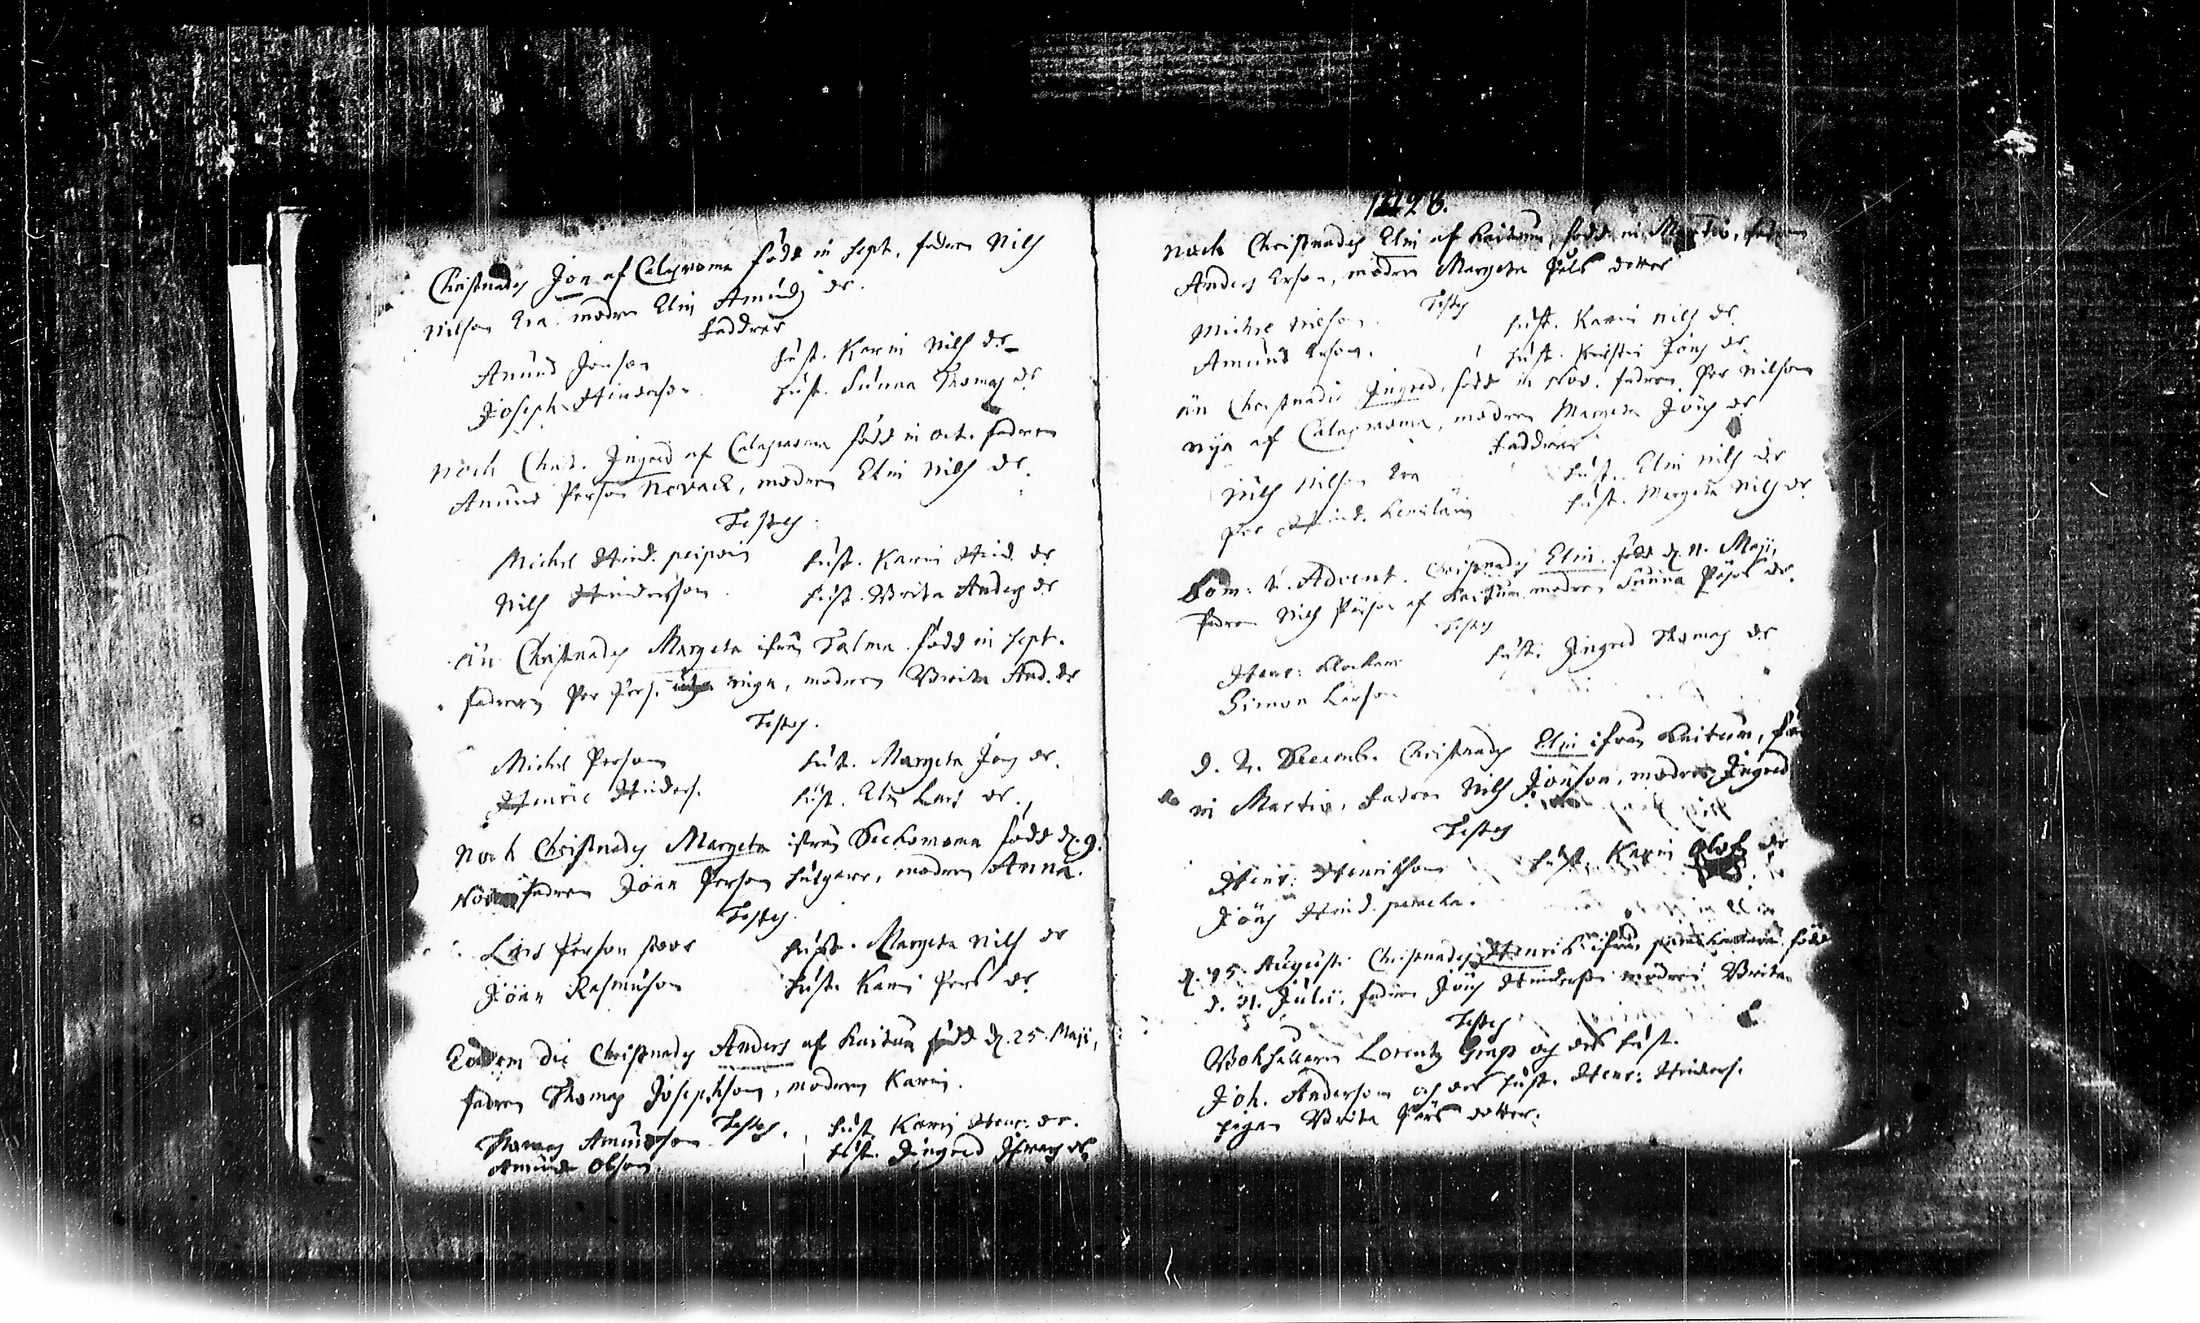 Christnades Jon af Calasvoma född in Sept. fadren Nils
Nilson Era modren Elin Amunds dr.
Faddrar
Amund Jonson Hust. Karin Nils dr
Joseph Hinderson Hust. Sunna Thomas dr
Noch Christ. Ingred af Calasvoma född in Oct. fadren
Amund Person Norvack, modren Elin Nils dr.
Testes
Michel Hind. peipoin Hust. Karin Hind. dr
Nils Hinderson Hust. Brita Anders dr
Än Christnades Margeta ifrån Talma född in Sept.
fadren Per Pers. niga, modren Brita And. dr
Testes.
Michel Person Hust. Margeta Jons dr.
Henric Hinders. Hust. Elin Lars dr.
Noch Christnades Margeta ifrån född d. 9.
Nov. fadren Jöran Person, modren Anna.
Testes
Lars Person Hust. Margeta Nils dr
Jöran Rasmuson Hust. Karin Pers dr
Eodem die Christnades Anders af Kaitum född d. 25. Maji,
fadren Thomas Josephson, modren Karin.
Testes.
Thomas Amundson Hust. Karin Henr. dr.
Amund Olson Hust. Ingred Thomas dr
Noch Christnades Elin af Kaitum, född in Martio, fadren
Anders Erson, modren Margeta Påls dotter
Testes
Michel Nilson. Hust. Karin Nils dr.
Amund Erson. Hust. Kerstin Jons dr.
Än Christnades Ingred, född in Nov. fadren Per Nilson
niga af Calasvoma, modren Margeta Jons dr
Faddrar
Nils Nilson Era Hust. Elin Nils dr
Per Hind. Hust. Margeta Nils dr.
Dom. 2. Advent. Christnades Elin född d. 11. Maji,
Fadren Nils af Kaitum modren Sunna dr.
Testes
Henr: Klockare Hust. Ingred Thomas dr
Simon Larson
d. 2. Decemb. Christnades Elin ifrån Kaitum,
in Martio, fadren Nils Jonson, modren Ingred
Testes
Henr: Henrikson Hust. Karin Olofs dr
Jöns Hind.
d. 15. Augusti Christnades Henrik ifrån född
d. 31. Julii, fadren Jöns Hinderson modren Brita
Testes
Bokhållaren Lorentz och des Hust.
Joh. Anderson och des Hust. Henr: Hinders.
pigan Brita Pärs dotter.